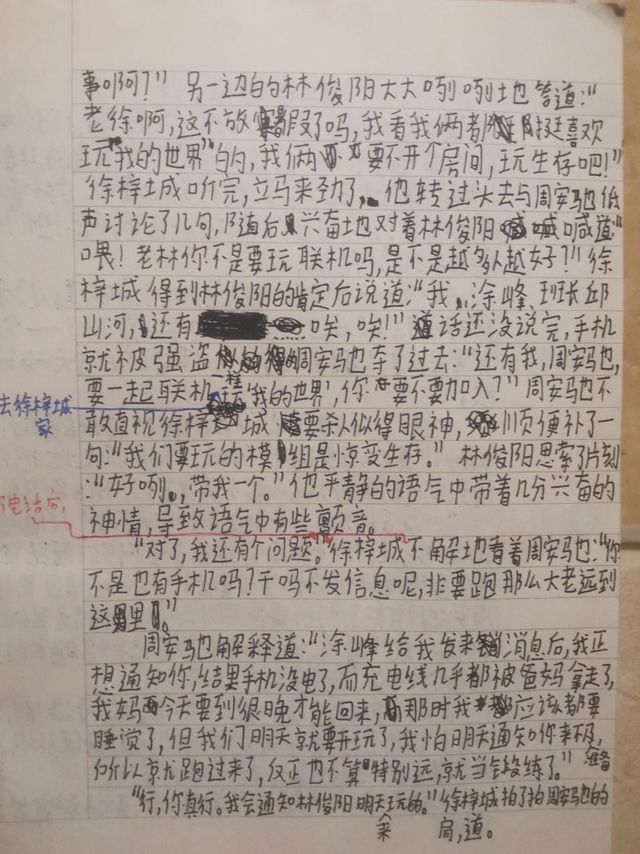 事啊？” 另一边的林俊阳大大咧咧地答道：“
老徐啊，这不放暑假了吗，我看我俩都挺喜欢
玩“我的世界”的，我俩要不开个房间，玩生存吧！”
徐梓城听完，立马来劲了，他转过头去与周安马也低
声讨论了几句，随后兴奋地对着林俊阳喊道：“
喂！老林你不是要玩联机吗，是不是越多人越好？”徐
梓城得到林俊阳的肯定后说道：“我，涂峰，班长邱
山河，还有 唉，唉！”话还没说完，手机
就被强盗似的周安马也夺了过去：“还有我，周安马也，
要一起联机玩‘我的世界’，你要不要加入？”周安马也不
去徐梓城家
敢直视徐梓城要杀人似得眼神，顺便补了一
句：“我们要玩的模组是惊变生存。” 林俊阳思索了片刻
：“好咧，带我一个。”他平静的语气中带着几分兴奋的
电话后，
神情，导致语气中有些颤音。
“对了，我还有个问题。”徐梓城不解地看着周安马也：“你
不是也有手机吗？干吗不发信息呢，非要跑那么大老远到
这里。”
周安马也解释道：“涂峰给我发来消息后，我正
想通知你，结果手机没电了，而充电线几乎都被爸妈拿走了，
我妈今天要到很晚才能回来，那时我应该都要
睡觉了，但我们明天就要开玩了，我怕明天通知你来不及准备，
所以就跑过来了，反正也不算特别远，就当锻练了。”
“行，你真行。我会通知林俊阳明天来玩的。”徐梓城拍了拍周安马也的
肩，道。